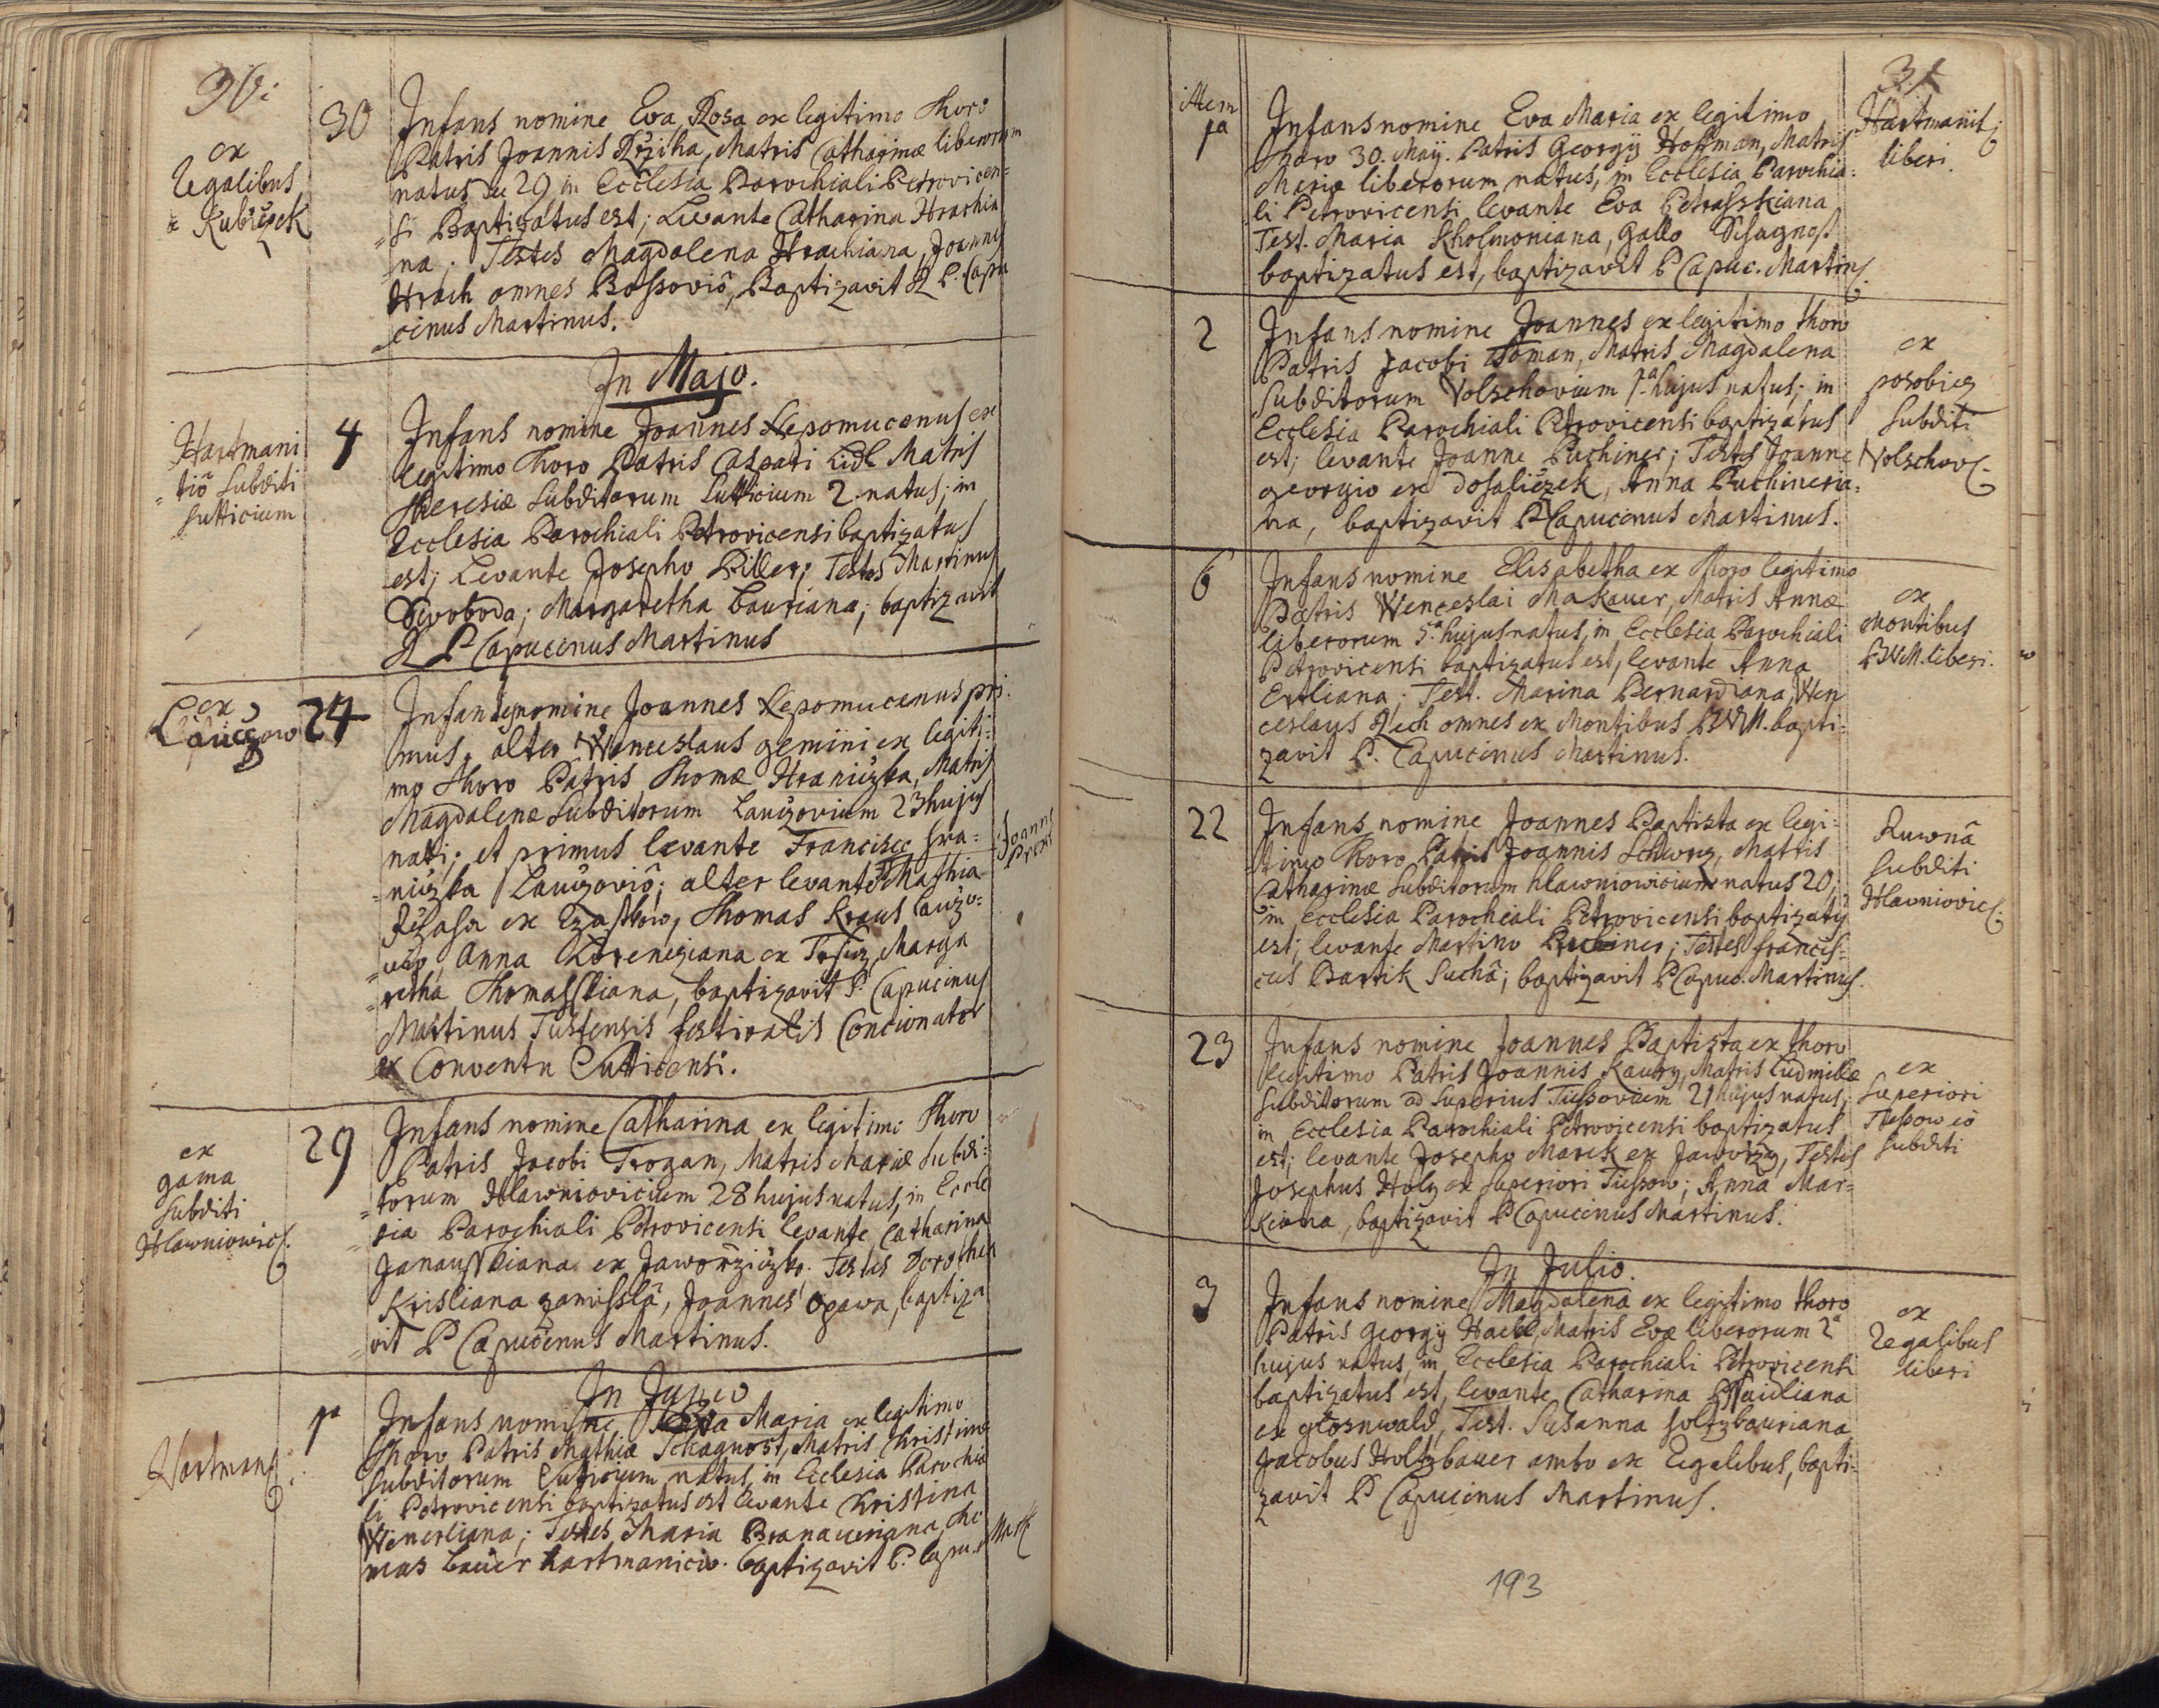 30
ex
Regalibus
Kubiczek
30
Infans nomine Eva Rosa ex legitimo thoro
Patris Joannis Rziha, Matris Catharinæ liberorum
natus 29 in Ecclesia Parochiali Petrovicen=
=si Baptizatus est; Levante Catharina Hrachia
=na; Testes Magdalena Hrachiana, Joannes
Hrach omnes Bossoviõ, Baptizavit R P. Capu
cinus Martinus.
In Majo.
Hartmani
=tiõ Subditi
Sutticium
4
Infans nomine Joannes Nepomucenus ex
legitimo thoro Patris Caspari Lidl Matris
Theresiæ Subditorum Sutticium 2. natus; in
Ecclesia Parochiali Petrovicensi baptizatus
est; Levante Josepho Piller; Testes Martinus
Swoboda; Margaretha Bauriana; baptizavit
R P Capucinus Martinus
ex
Lauczow
24
Infantes nomine Joannes Nepomucenus pri
mus, alter Wenceslaus gemini ex legiti=
mo thoro Patris Thomæ Hraniczka, Matris
Magdalenæ Subditorum Lauczovium 23 hujus
nati; et primus levante Francisco Hra=
=niczka Lauczoviõ; alter levante Mathia
Rzasa ex Czastkow, Thomas Kraus Lauzo=
=vio, Anna Lorencziana ex Trsicz, Marga
=retha Thomasskiana, baptizavit P. Capucinus
Martinus Tustensis festivalis Concionator
ex Conventu Sutticensi.
ex
gama
Subditi
Hlawniowic
29
Infans nomine Catharina ex legitimi thoro
Patris Jacobi Trogan, Matris Mariæ Subdi=
=torum Hlawniovicium 28 hujus natus, in Eccle
=sia Parochiali Petrovicensi levante Catharina
Janauskiana ex Jaworziczko. Testes Dorothea
Krisliana zamisslã, Joannes Opawa, baptiza
=vit P Capucinus Martinus.
In Junio
Hartmans
1ª
Infans nomine Eva Maria ex legitimo
thoro Patris Mathiæ Schagnost, Matris Kristinæ
Subditorum Sutticium natus, in Ecclesia Parochia
li Petrovicensi baptizatus est levante Kristina
Wenerliana; Testes Maria Branaueriana, tho
mas Bauer hartmanicio. baptizavit P. Capu. Mart
31
item
1ª
Infans nomine Eva Maria ex legitimo
thoro 30. Maÿ. Patris Georgÿ Hoffman, Matris
Mariæ liberorum natus, in Ecclesia Parochia=
li Petrovicensi levante Eva Petrasskiana
Test. Maria Kholmoniana, Gallo Schagnost
baptizatus est, baptizavit P Capuc. Martinus.
Hartmanit
liberi.
2
Infans nomine Joannes ex legitimo thoro
Patris Jacobi Toman, Matris Magdalena
Subditorum Wolschovium 1ª hujus natus; in
Ecclesia Parochiali Petrovicensi baptizatus
est; levante Joanne Puchiner; Testes Joanne
georgio ex dosaliczek, Anna Puchineria=
na, baptizavit P Capucinus Martinus.
ex
posobicz
Subditi
Wolschov
6
Infans nomine Elisabetha ex thoro legitimo
Patris Wenceslai Makauer, Matris Annæ
liberorum 5ª hujus natus, in Ecclesia Parochiali
Petrovicensi baptizatus est, levante Anna
Ertliana; Test. Marina Bernardiana, Wen
ceslaus Zech omnes ex Montibus BVM. bapti=
zavit P. Capucinus Martinus.
ex
Montibus
BVM. liberi.
22
Infans nomine Joannes Baptista ex legi=
=timo thoro Patris Joannis Schwrz, Matris
Catharinæ Subditorum hlawniowicium natus 20,
in Ecclesia Parochiali Petrovicensi baptizatus
est; levante Martino Puchiner; Testes francis=
cus Bartik Suchã; baptizavit P Capuc. Martinus.
Ruwnã
Subditi
Hlawniovic
23
Infans nomine Joannes Baptista ex thoro
legitimo Patris Joannis Kautzy, Matris Ludmilæ
Subditorum ad Superius Tiessovium 21 hujus natus,
in Ecclesia Parochiali Petrovicensi baptizatus
est; levante Josepho Marek ex Jaworzy, Testes
Josephus Holy ex Superiori Tiessow; Anna Mar=
Kiana, baptizavit P Capucinus Martinus.
ex
Superiori
Tiessow iõ
Subditi
In Julio.
3
Infans nomine Magdalena ex legitimo thoro
Patris Georgÿ Haell, Matris Evæ liberorum 2ª
hujus natus, in Ecclesia Parochiali Petrovicensi
baptizatus est, levante Catharina
ex grosnwald, Test. Susanna holtzbauriana
Jacobus Holtzbauer ambo ex Regalibus, bapti=
zavit P Capucinus Martinus.
ex
Regalibus
liberi
193